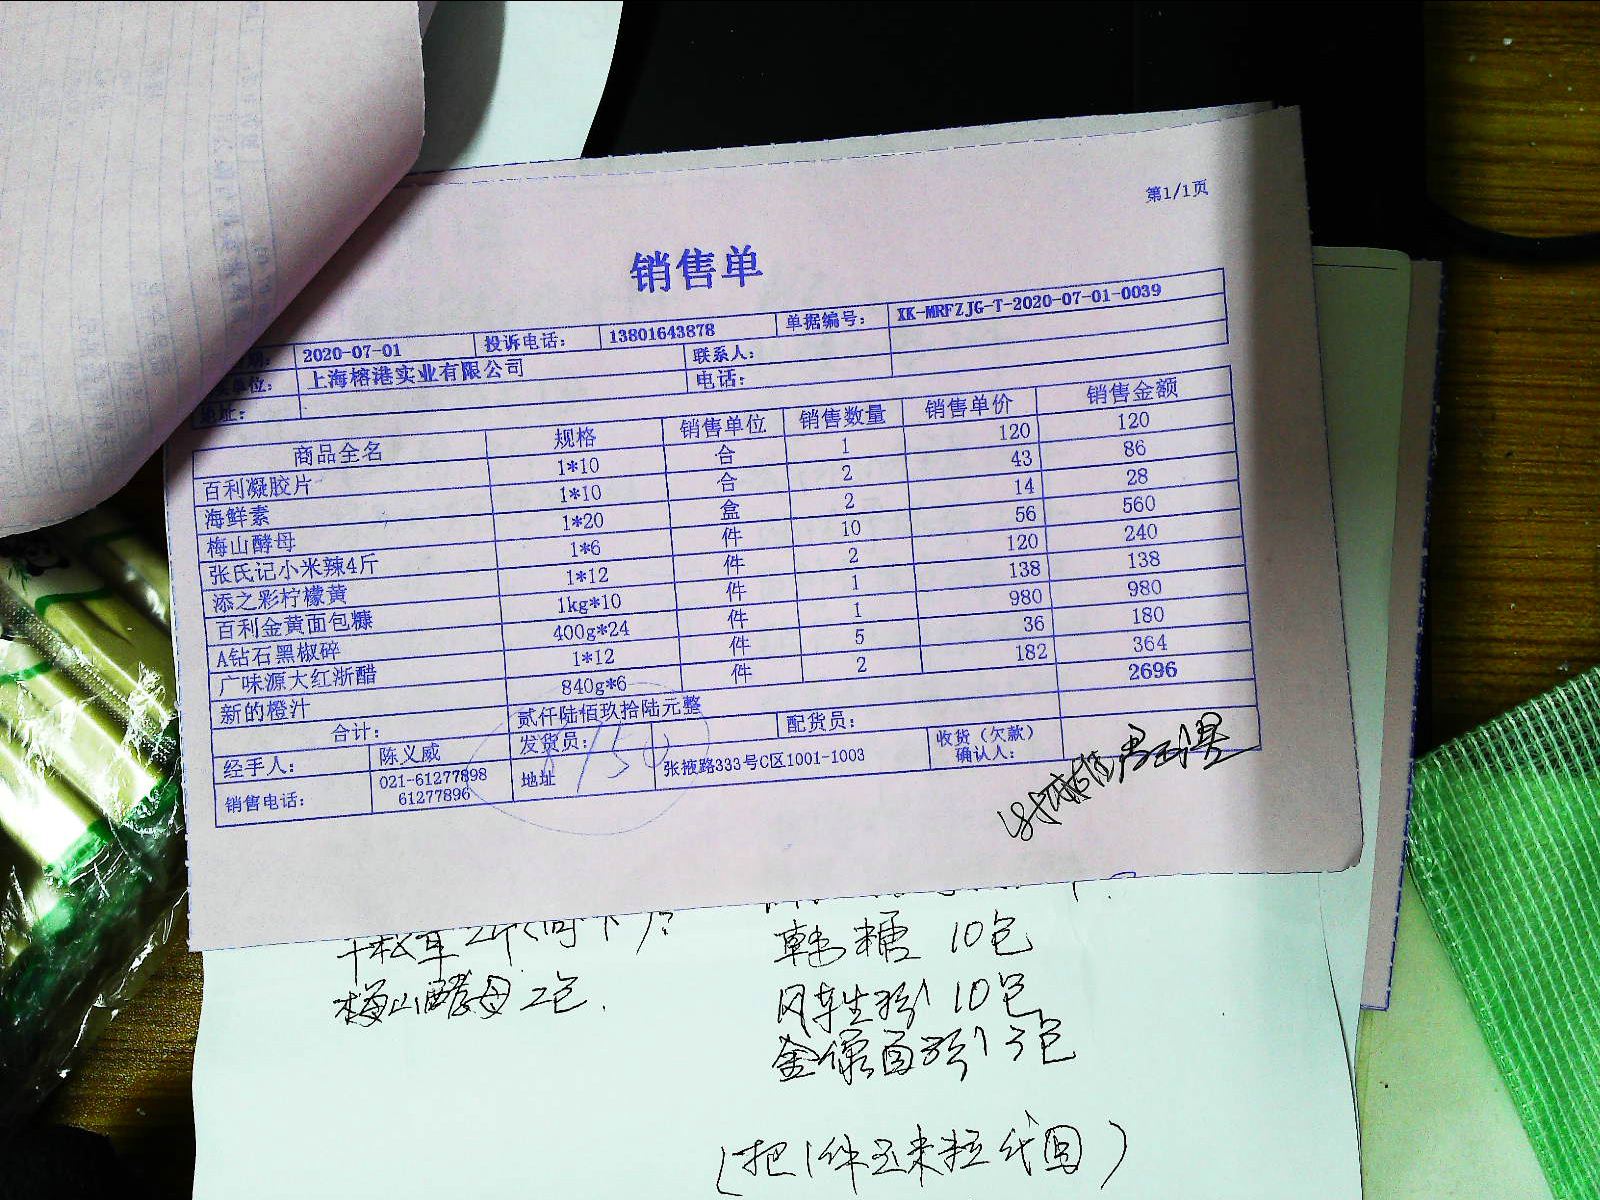 第1/1页
销售单
期: 2020-07-01 投诉电话: 13801643878 单据编号: XK-MRFZJG-T-2020-07-01-0039
单位: 上海榕港实业有限公司 联系人:
地址: 电话:
商品全名 规格 销售单位 销售数量 销售单价 销售金额
百利凝胶片 1*10 合 1 120 120
海鲜素 1*10 合 2 43 86
梅山酵母 1*20 盒 2 14 28
张氏记小米辣4斤 1*6 件 10 56 560
添之彩柠檬黄 1*12 件 2 120 240
百利金黄面包糠 1kg*10 件 1 138 138
A钻石黑椒碎 400g*24 件 1 980 980
广味源大红浙醋 1*12 件 5 36 180
新的橙汁 840g*6 件 2 182 364
合计: 贰仟陆佰玖拾陆元整 2696
经手人: 陈义威 发货员: 配货员: 收货(欠款)确认人:
销售电话: 021-61277898 61277896 地址 张掖路333号C区1001-1003
韩糖 10包
梅山酵母 2包.
风车生粉 10包
金像面粉 3包
(把1件玉米粒代回)